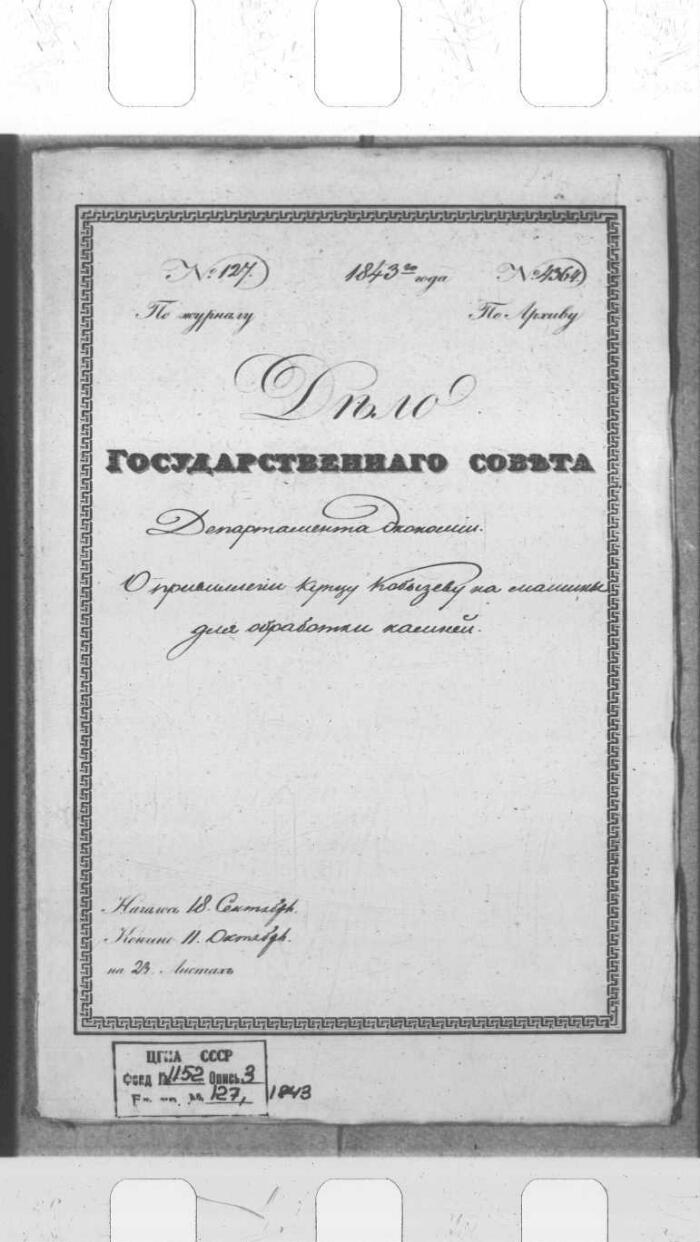 № 127. 1843 го года № 4364
По журналу По Архиву
Дѣло
Государственнаго Совѣта
Департамента Экономіи.
О привиллегіи купцу Кобызеву на машины
для обработки камней.
Началось 18. Сентября.
Кончено 11. Октября.
на 23. Листахъ
ЦГИА СССР
Фонд № 1152 Опись 3
Ед. хр. № 127, 1843